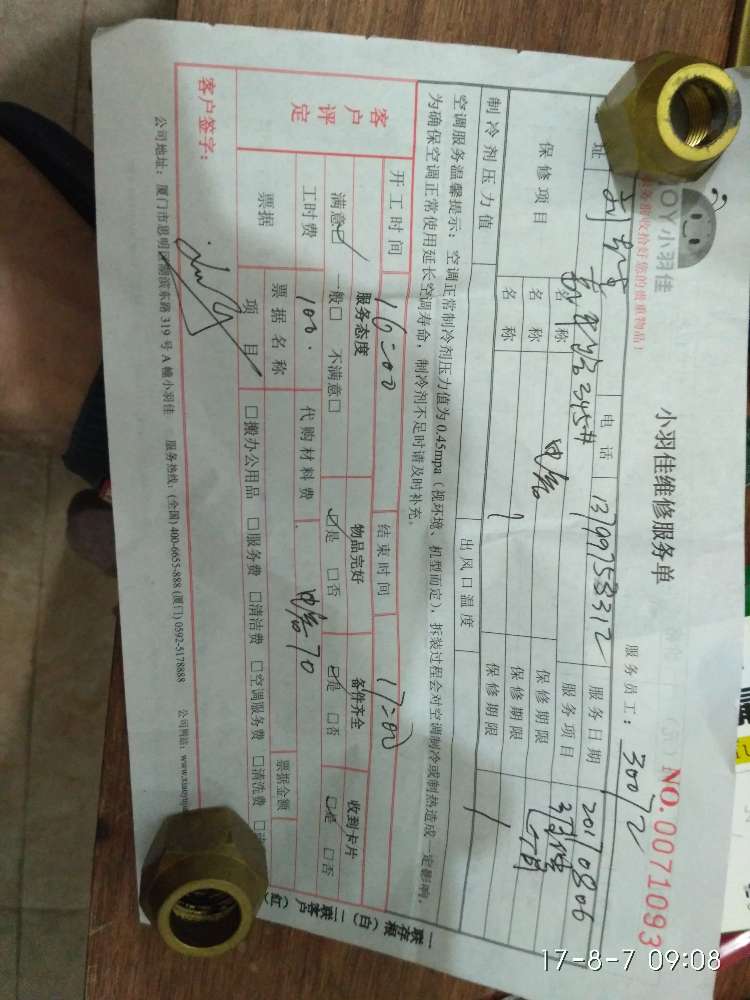 OY小羽佳
收拾好您的贵重物品!
小羽佳维修服务单
NO.0071093
服务员工: 30072
址
电话 13799758312 服务日期 20170806
保修项目 名称 电容 保修期限
服务项目
名称 保修期限
名称 保修期限
制冷剂压力值 出风口温度
空调服务温馨提示: 空调正常制冷剂压力值为0.45mpa (视环境、机型而定), 拆装过程会对空调制冷或制热造成一定影响,
为确保空调正常使用延长空调寿命, 制冷剂不足时请及时补充。
开工时间 16:00 结束时间 17:00
客户评定 服务态度 物品完好 备件齐全 收到卡片
满意☑ 一般□ 不满意□ ☑是 □否 ☑是 □否 ☑是 □否
工时费 100. 代购材料费 电容70
票据 票据名称 票据金额
项目 □搬办公用品 □服务费 □清洁费 □空调服务费 □清洗费
客户签字:
公司地址: 厦门市思明区湖滨东路319号A幢小羽佳 服务热线: (全国) 400-6655-888 (厦门) 0592-5178888 公司网站: www.xiaoyu
一联存根 (白) 二联客户 (红)
17-8-7 09:08